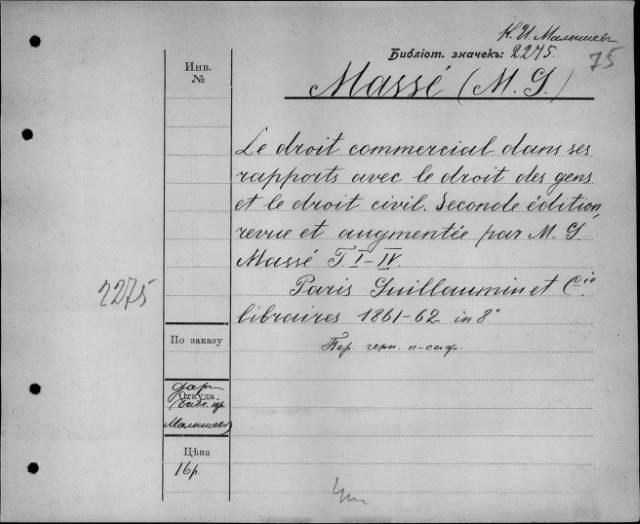 К. И. Малышев
Библіот. значекъ: 2275.
75
Инв.
№
Massé (M. G.)
Le droit commercial dans ses
rapports avec le droit des gens
et le droit civil. Seconde édition,
revue et augmentée par M. G.
Massé T. I-IV.
Paris Guillaumin et Cie.
libraires 1861-62 in 8°
2275
По заказу
Пер. черн. п-саф.
дар
Откуда
библ. пр.
Малышев
Цѣна
16 р.